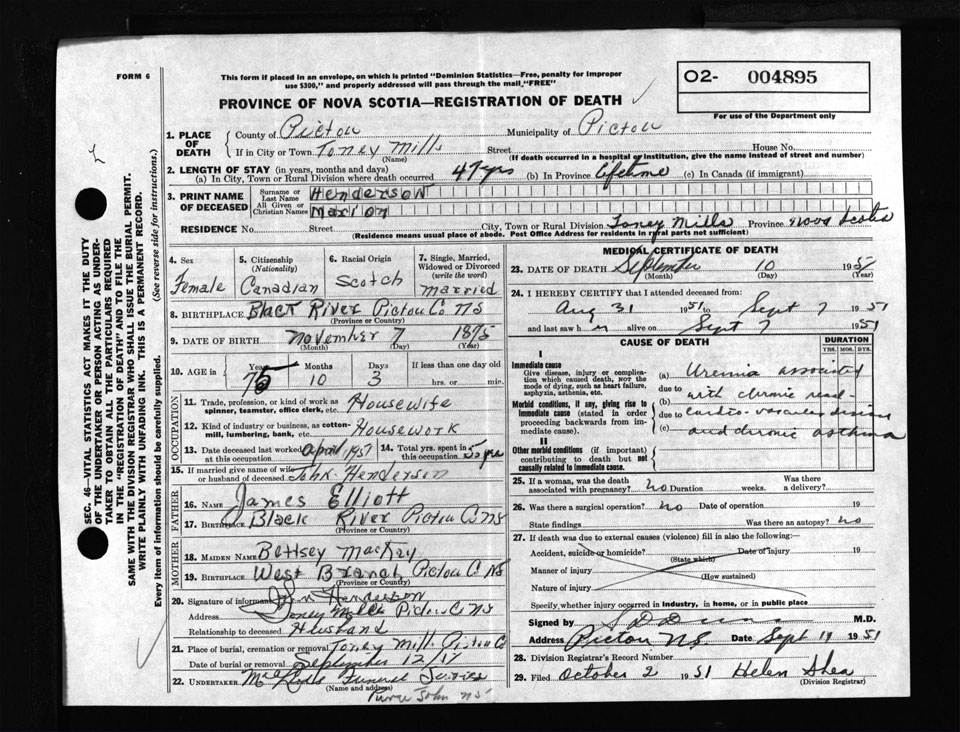 FORM 6
This form if placed in an envelope, on which is printed "Dominion Statistics—Free, penalty for improper
use $300," and properly addressed will pass through the mail, "FREE"
O2- 004895
For use of the Department only
PROVINCE OF NOVA SCOTIA—REGISTRATION OF DEATH
1. PLACE OF DEATH
County of Pictou Municipality of Pictou
If in City or Town Toney Mills Street House No.
(Name) (If death occurred in a hospital or institution, give the name instead of street and number)
2. LENGTH OF STAY (in years, months and days)
(a) In City, Town or Rural Division where death occurred 47 yrs (b) In Province Lifetime (c) In Canada (if immigrant)
3. PRINT NAME OF DECEASED
Surname or Last Name Henderson
All Given or Christian Names Marion
RESIDENCE No. Street City, Town or Rural Division Toney Mills Province Nova Scotia
(Residence means usual place of abode. Post Office Address for residents in rural parts not sufficient)
4. Sex Female
5. Citizenship (Nationality) Canadian
6. Racial Origin Scotch
7. Single, Married, Widowed or Divorced (write the word) Married
8. BIRTHPLACE Black River Pictou Co NS
(Province or Country)
9. DATE OF BIRTH November 7 1875
(Month) (Day) (Year)
10. AGE in Years 75 Months 10 Days 3 If less than one day old hrs. or min.
OCCUPATION
11. Trade, profession, or kind of work as spinner, teamster, office clerk, etc. Housewife
12. Kind of industry or business, as cotton-mill, lumbering, bank, etc. Housework
13. Date deceased last worked at this occupation April 1951 14. Total yrs. spent in this occupation
15. If married give name of wife or husband of deceased John Henderson
FATHER
16. NAME James Elliott
17. BIRTHPLACE Black River Pictou Co NS
(Province or Country)
MOTHER
18. MAIDEN NAME Bettsey MacKay
19. BIRTHPLACE West Branch Pictou C NS
(Province or Country)
20. Signature of informant John Henderson
Address Toney Mills Pictou Co NS
Relationship to deceased Husband
21. Place of burial, cremation or removal Toney Mill Pictou Co
Date of burial or removal September 12/
22. UNDERTAKER Funeral Service
(Name and address)
John NS
MEDICAL CERTIFICATE OF DEATH
23. DATE OF DEATH September 10 195
(Month) (Day) (Year)
24. I HEREBY CERTIFY that I attended deceased from:
Aug 31 1951 to Sept 7 1951
and last saw h er alive on Sept 7 1951
CAUSE OF DEATH
DURATION
YRS. MOS. DYS.
I
Immediate cause
Give disease, injury or complication which caused death, not the mode of dying, such as heart failure, asphyxia, asthenia, etc.
Morbid conditions, if any, giving rise to immediate cause (stated in order proceeding backwards from immediate cause).
II
Other morbid conditions (if important) contributing to death but not causally related to immediate cause.
(a) Uremia associated
due to
(b) with chronic renal-
due to cardio-vascular disease
(c) and chronic asthma
25. If a woman, was the death associated with pregnancy? no Duration weeks. Was there a delivery?
26. Was there a surgical operation? no Date of operation 19
State findings Was there an autopsy? no
27. If death was due to external causes (violence) fill in also the following:—
Accident, suicide or homicide? Date of injury 19
(State which)
Manner of injury
(How sustained)
Nature of injury
Specify whether injury occurred in industry, in home, or in public place
Signed by M.D.
Address Pictou N.S. Date Sept 19 1951
28. Division Registrar's Record Number
29. Filed October 2 1951 Helen Shea
(Division Registrar)
SEC. 46—VITAL STATISTICS ACT MAKES IT THE DUTY
OF THE UNDERTAKER OR PERSON ACTING AS UNDER-
TAKER TO OBTAIN ALL THE PARTICULARS REQUIRED
IN THE "REGISTRATION OF DEATH" AND TO FILE THE
SAME WITH THE DIVISION REGISTRAR WHO SHALL ISSUE THE BURIAL PERMIT.
WRITE PLAINLY WITH UNFADING INK. THIS IS A PERMANENT RECORD.
Every item of information should be carefully supplied. (See reverse side for instructions.)